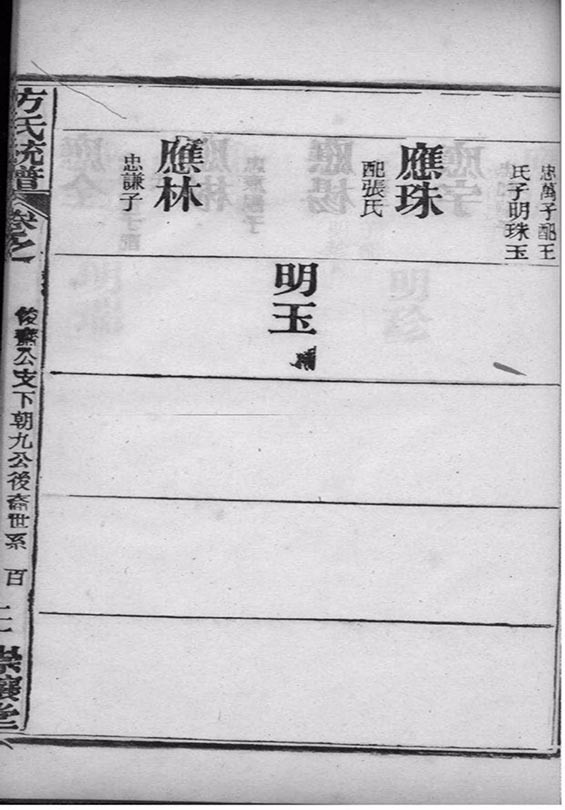 忠萬子配王
氏子明珠玉
應珠
配張氏
應林
忠謙子
明玉
方氏統譜
卷之
俊齋公支下朝九公後裔世系 百
崇讓堂